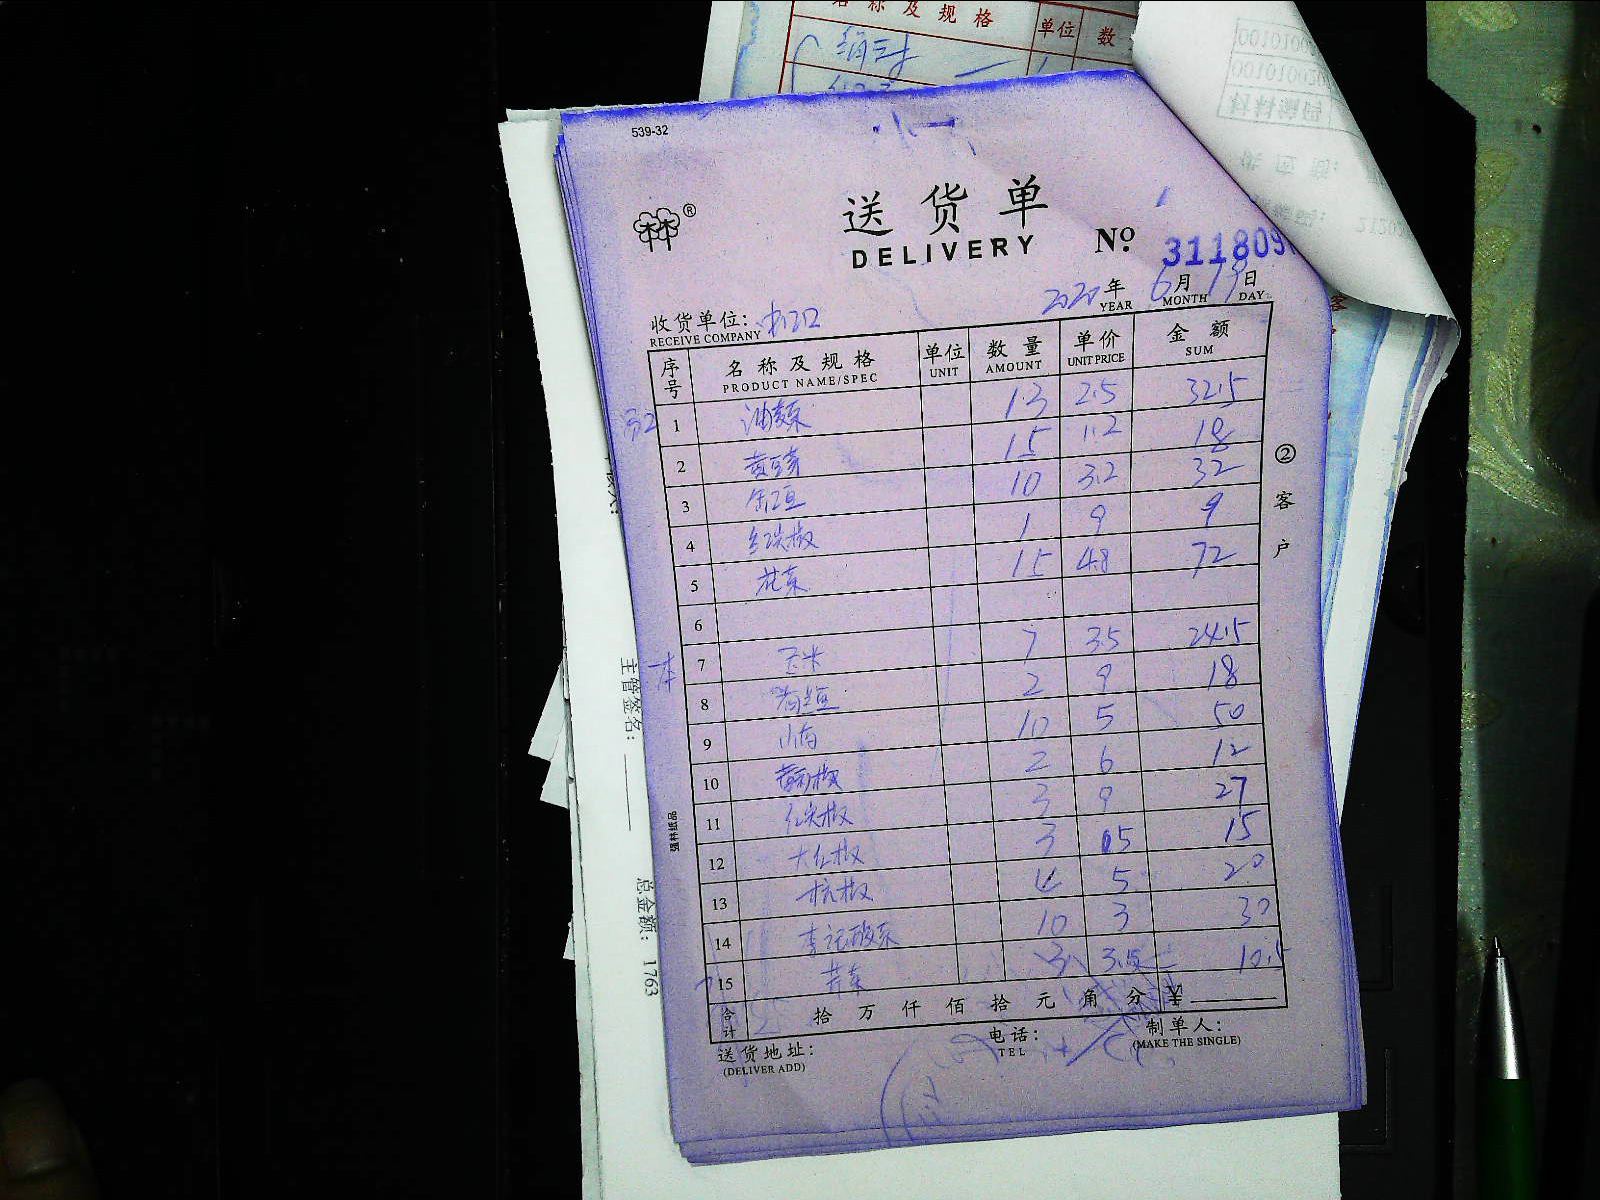 名称及规格 单位 数
539-32
送货单
DELIVERY No 311809
2020年 6月 19日
YEAR MONTH DAY
收货单位:
RECEIVE COMPANY
序号 名称及规格 单位 数量 单价 金额
PRODUCT NAME/SPEC UNIT AMOUNT UNIT PRICE SUM
1 油麦菜 13 2.5 32.5
2 15 1.2 18
3 10 3.2 32
4 红尖椒 1 9 9
5 花菜 15 4.8 72
6
7 玉米 7 3.5 24.5
8 2 9 18
9 10 5 50
10 2 6 12
11 红尖椒 3 9 27
12 大红椒 3 15
13 杭椒 4 5 20
14 李记酸菜 10 3 30
15 芹菜 3 3.5 10.5
合计 拾 万 仟 佰 拾 元 角 分 ¥
送货地址:
(DELIVER ADD)
电话:
TEL
制单人:
(MAKE THE SINGLE)
②客户
强林纸品
主管签名:
总金额: 1763